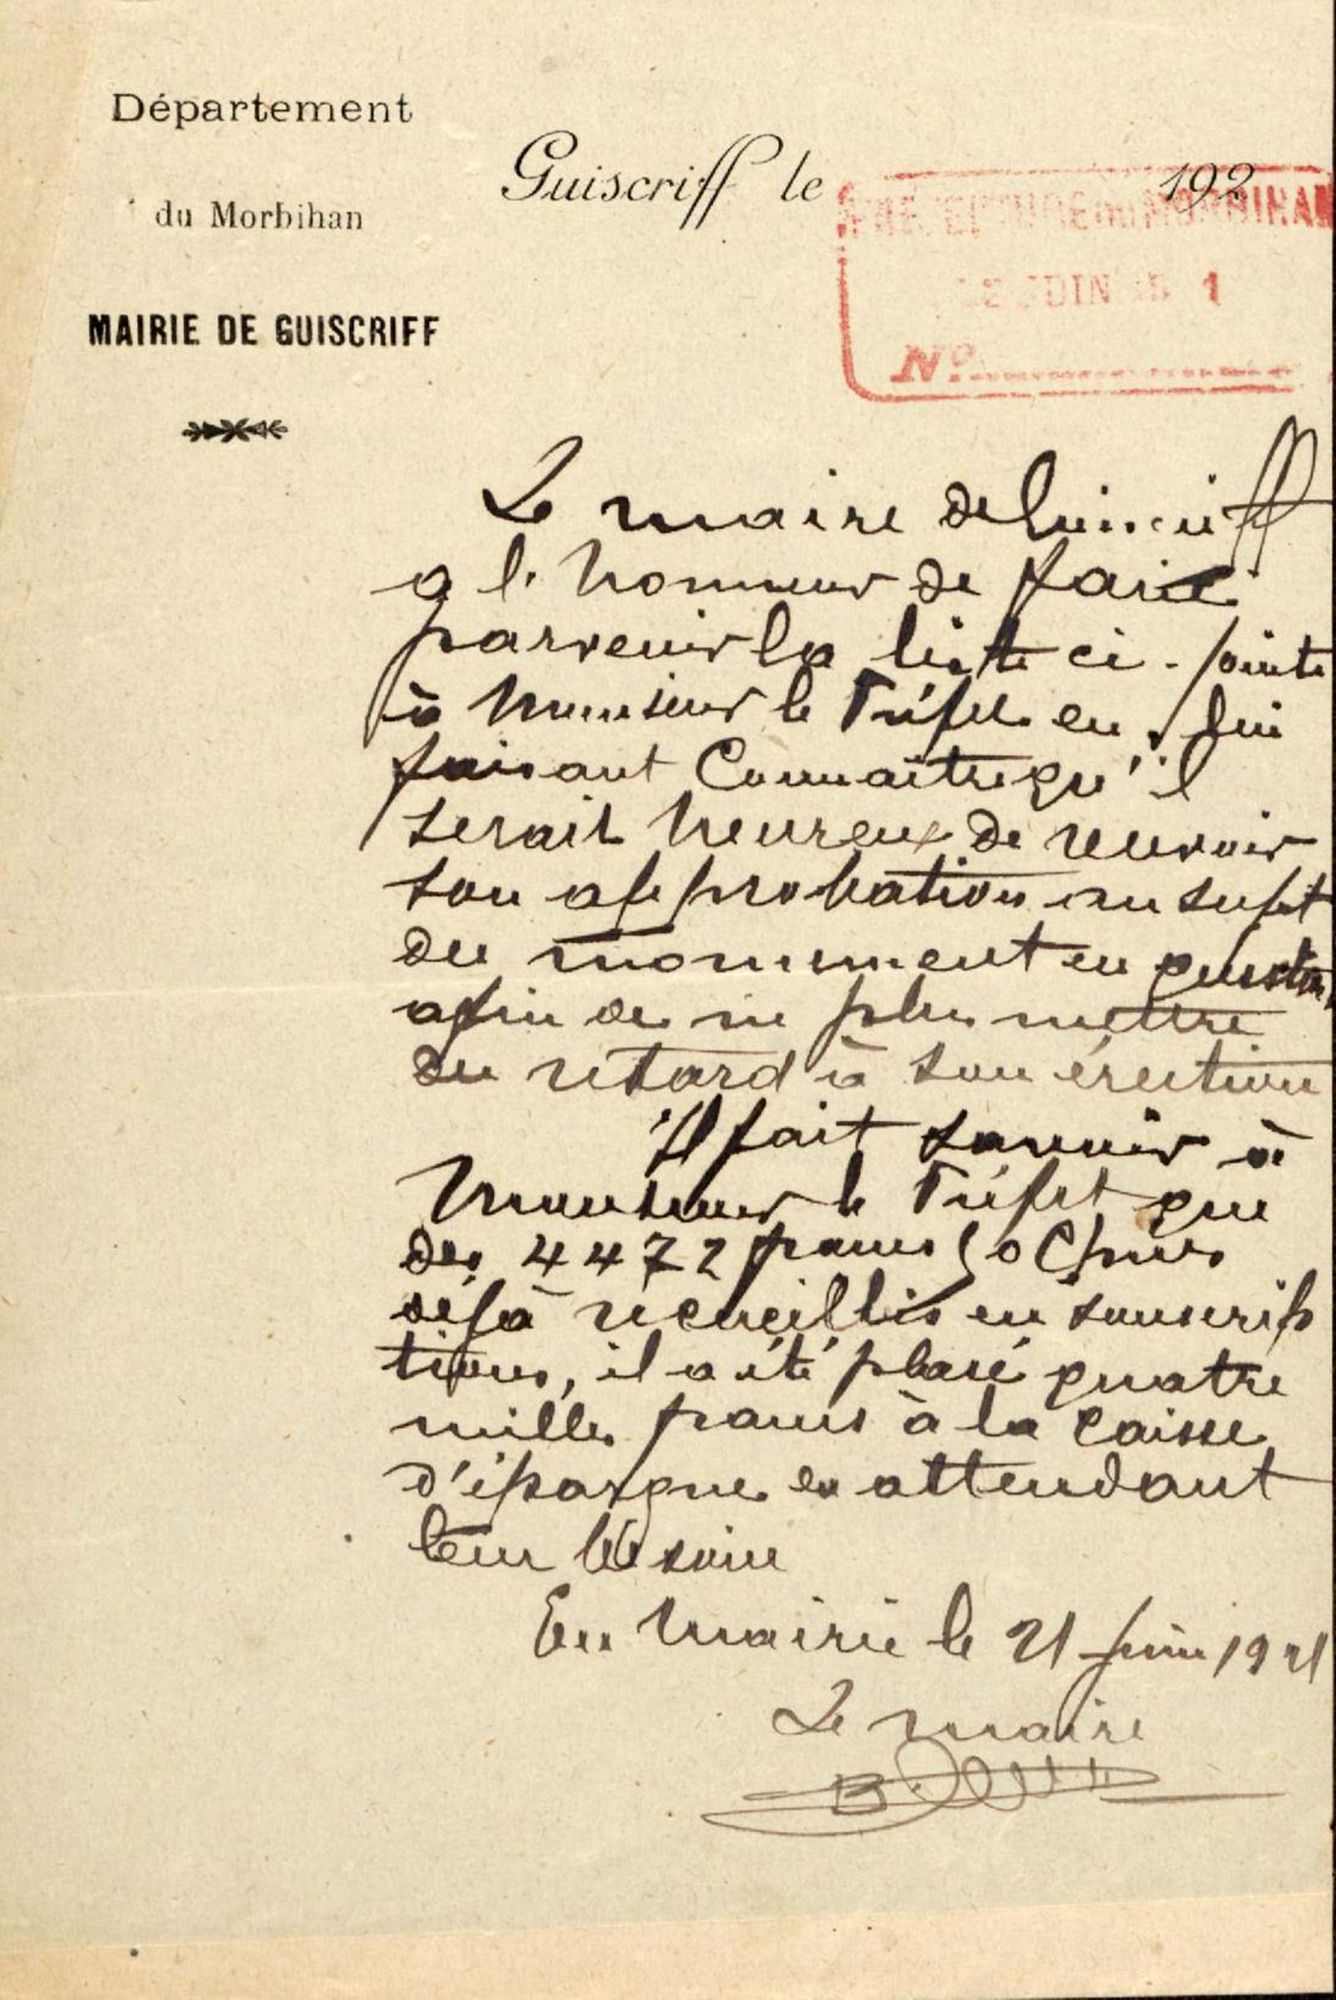 Département
du Morbihan
MAIRIE DE GUISCRIFF
Guiscriff le 192
PREFECTURE DU MORBIHAN
JUIN 1
N°
Le maire de Guiscriff
a l'honneur de faire
parvenir la liste ci-jointe
à Monsieur le Préfet en lui
faisant Connaître qu'il
serait heureux de recevoir
son approbation au sujet
du monument en question
afin de ne plus mettre
du retard à son érection
Il fait savoir à
Monsieur le Préfet que
des 4472 francs 50 
déjà recueillis en souscrip
tions, il a été placé quatre
mille francs à la Caisse
d'épargne en attendant
leur besoin
En Mairie le 21 juin 1921
Le maire